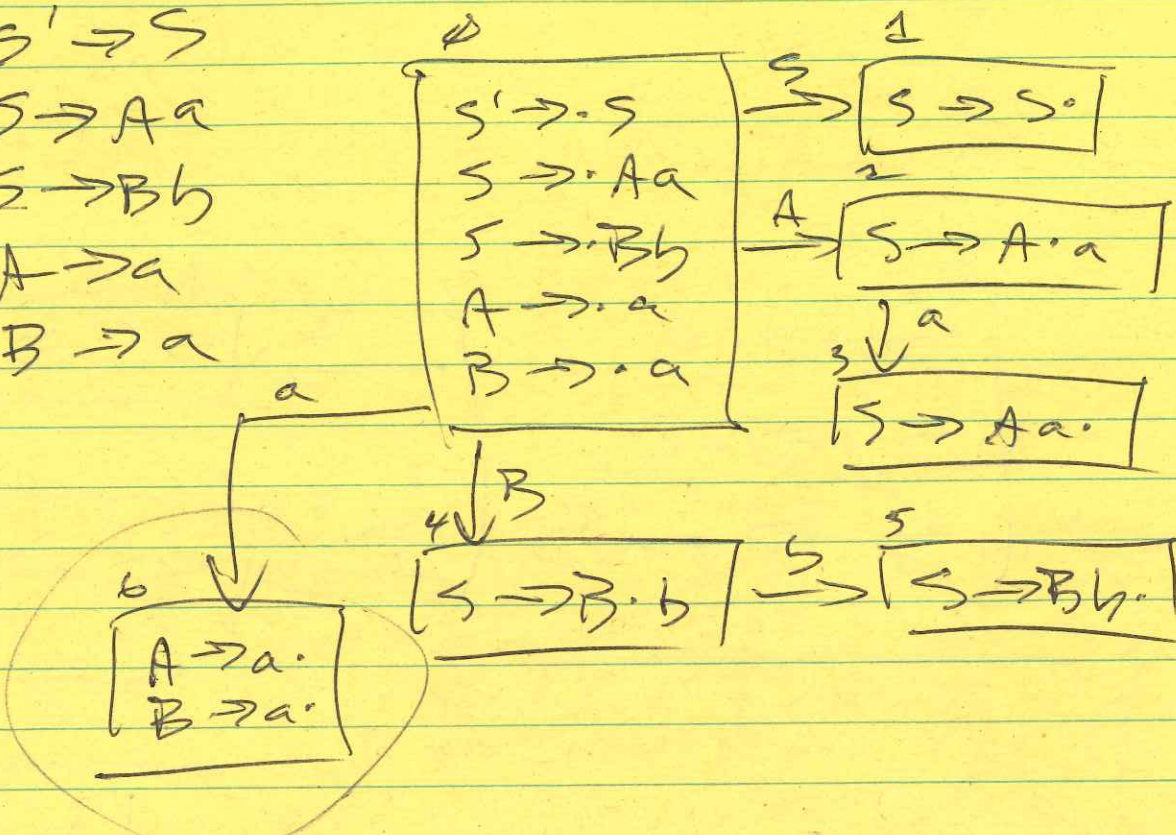 S' → S
S → Aa
S → Bb
A → a
B → a
0
S' → ·S
S → ·Aa
S → ·Bb
A → ·a
B → ·a
S
1
S → S·
A
2
S → A·a
a
3
S → Aa·
a
B
4
S → B·b
b
5
S → Bb·
6
A → a·
B → a·